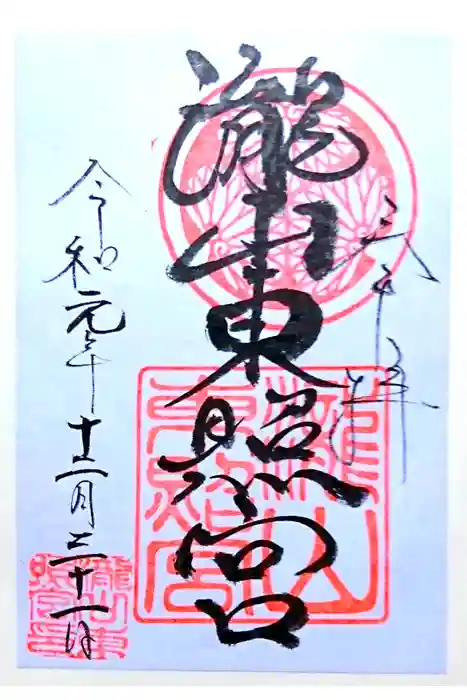 瀧山東照宮
瀧山
東照宮
令和元年十二月三十一日